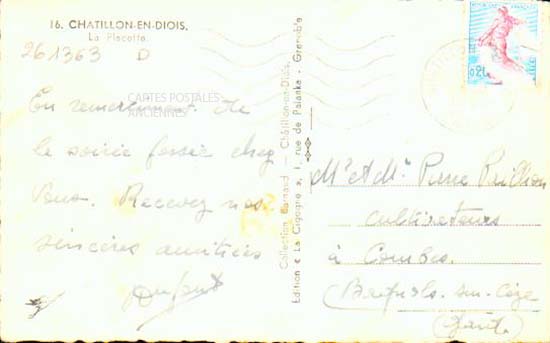 16. CHATILLON-EN-DIOIS.
La Placette.
261363 D
CARTES POSTALES
ANCIENNES
En remerciement de
la soirée passée chez
vous. Recevez nos
sincères amitiés
Dupont
Collection Barnaud — Châtillon-en-Diois.
Edition « La Cigogne », 1, rue de Palanka - Grenoble
REPUBLIQUE FRANCAISE
0,20
Mr et Mme Pierre
cultivateurs
à Combes
Bagnols-sur-Cèze
(Gard)